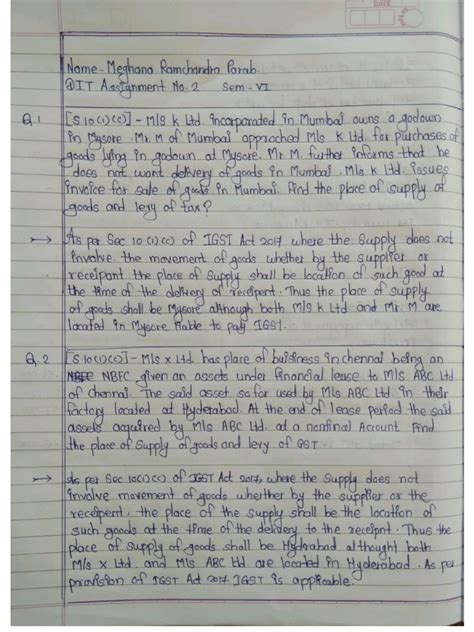 DATE
Name - Meghana Ramchandra Parab.
DIT Assignment No. 2 Sem - VI
Q.1 [S 10(1)(c)] - M/s K Ltd. incorporated in Mumbai owns a godown
in Mysore. Mr. M of Mumbai approched M/s K Ltd. for purchases of
goods lying in godown at Mysore. Mr. M. further informs that he
does not want delivery of goods in Mumbai. M/s K Ltd. issues
invoice for sale of goods in Mumbai. Find the place of supply of
goods and levy of tax?
→ As per Sec 10 (1)(c) of IGST Act 2017 where the Supply does not
Involve the movement of goods whether by the supplier or
receipant the place of Supply shall be location of such good at
the time of the delivery of receipent. Thus the place of supply
of goods shall be Mysore although both M/s K Ltd and Mr. M are
located in Mysore liable to pay IGST.
Q.2 [S 10(1)(c)] - M/s X Ltd. has place of buisiness in chennai being an
NBFC given an assets under financial lease to M/s ABC Ltd.
of chennai. The said asset so far used by M/s ABC Ltd. in their
factory located at Hyderabad. At the end of lease period the said
assets aquired by M/s ABC Ltd. at a nonfinal Account Find
the place of Supply of goods and levy of GST.
→ As per Sec 10(1)(c) of IGST Act 2017, where the Supply does not
involve movement of goods wherther by the supplier or the
receipent, the place of the supply shall be the location of
such goods at the time of the delivery to the receipnt. Thus the
place of supply of goods shall be Hydrabad althought both
M/s X Ltd. and M/s ABC Ltd. are located in Hyderabad. As per
provision of IGST Act 2017 IGST is applicable.